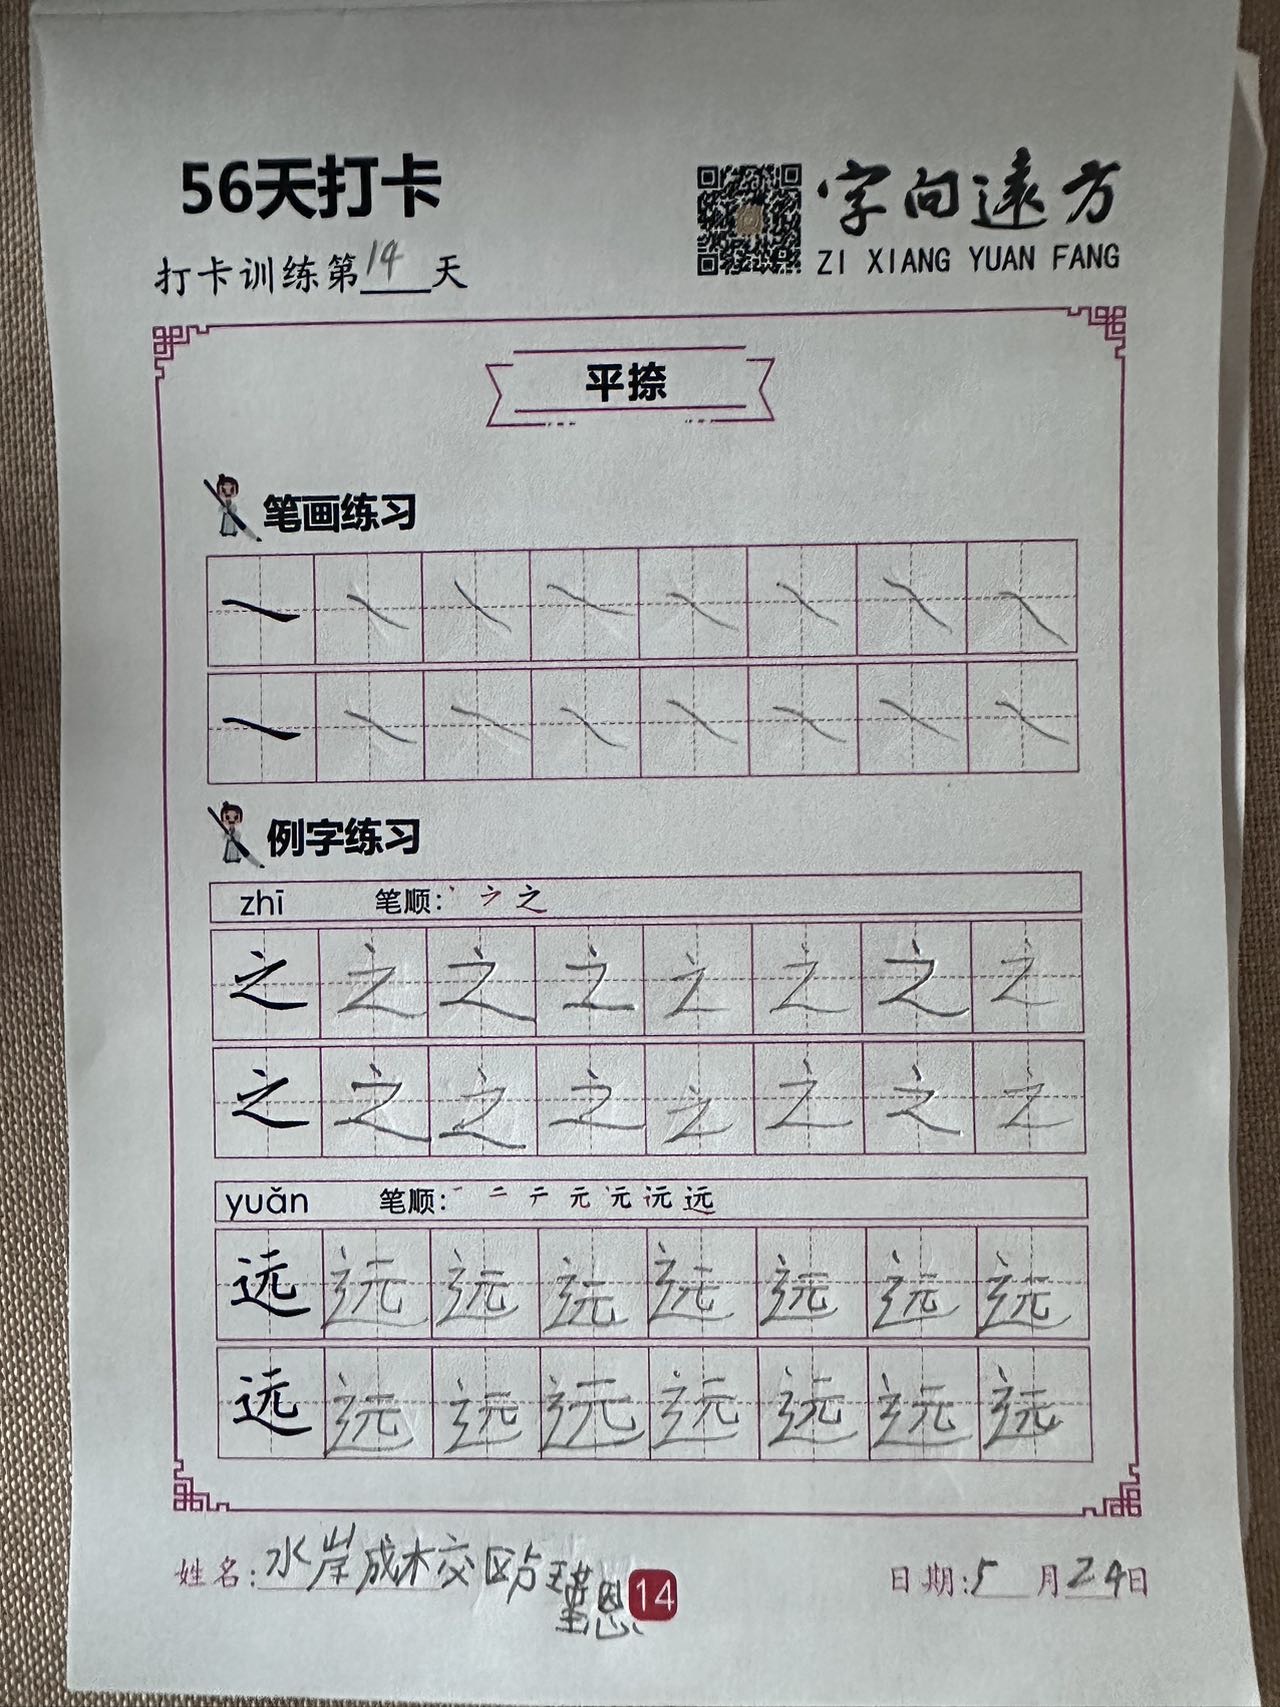 56天打卡
字向遠方
ZI XIANG YUAN FANG
打卡训练第14天
平捺
笔画练习
例字练习
zhī 笔顺: 之
之 之 之 之 之 之 之 之
之 之 之 之 之 之 之 之
yuǎn 笔顺: 一 二 テ 元 元 远 远
远 远 远 远 远 远 远 远
远 远 远 远 远 远 远 远
姓名: 水岸成校区 瑾恩
14
日期: 5月24日